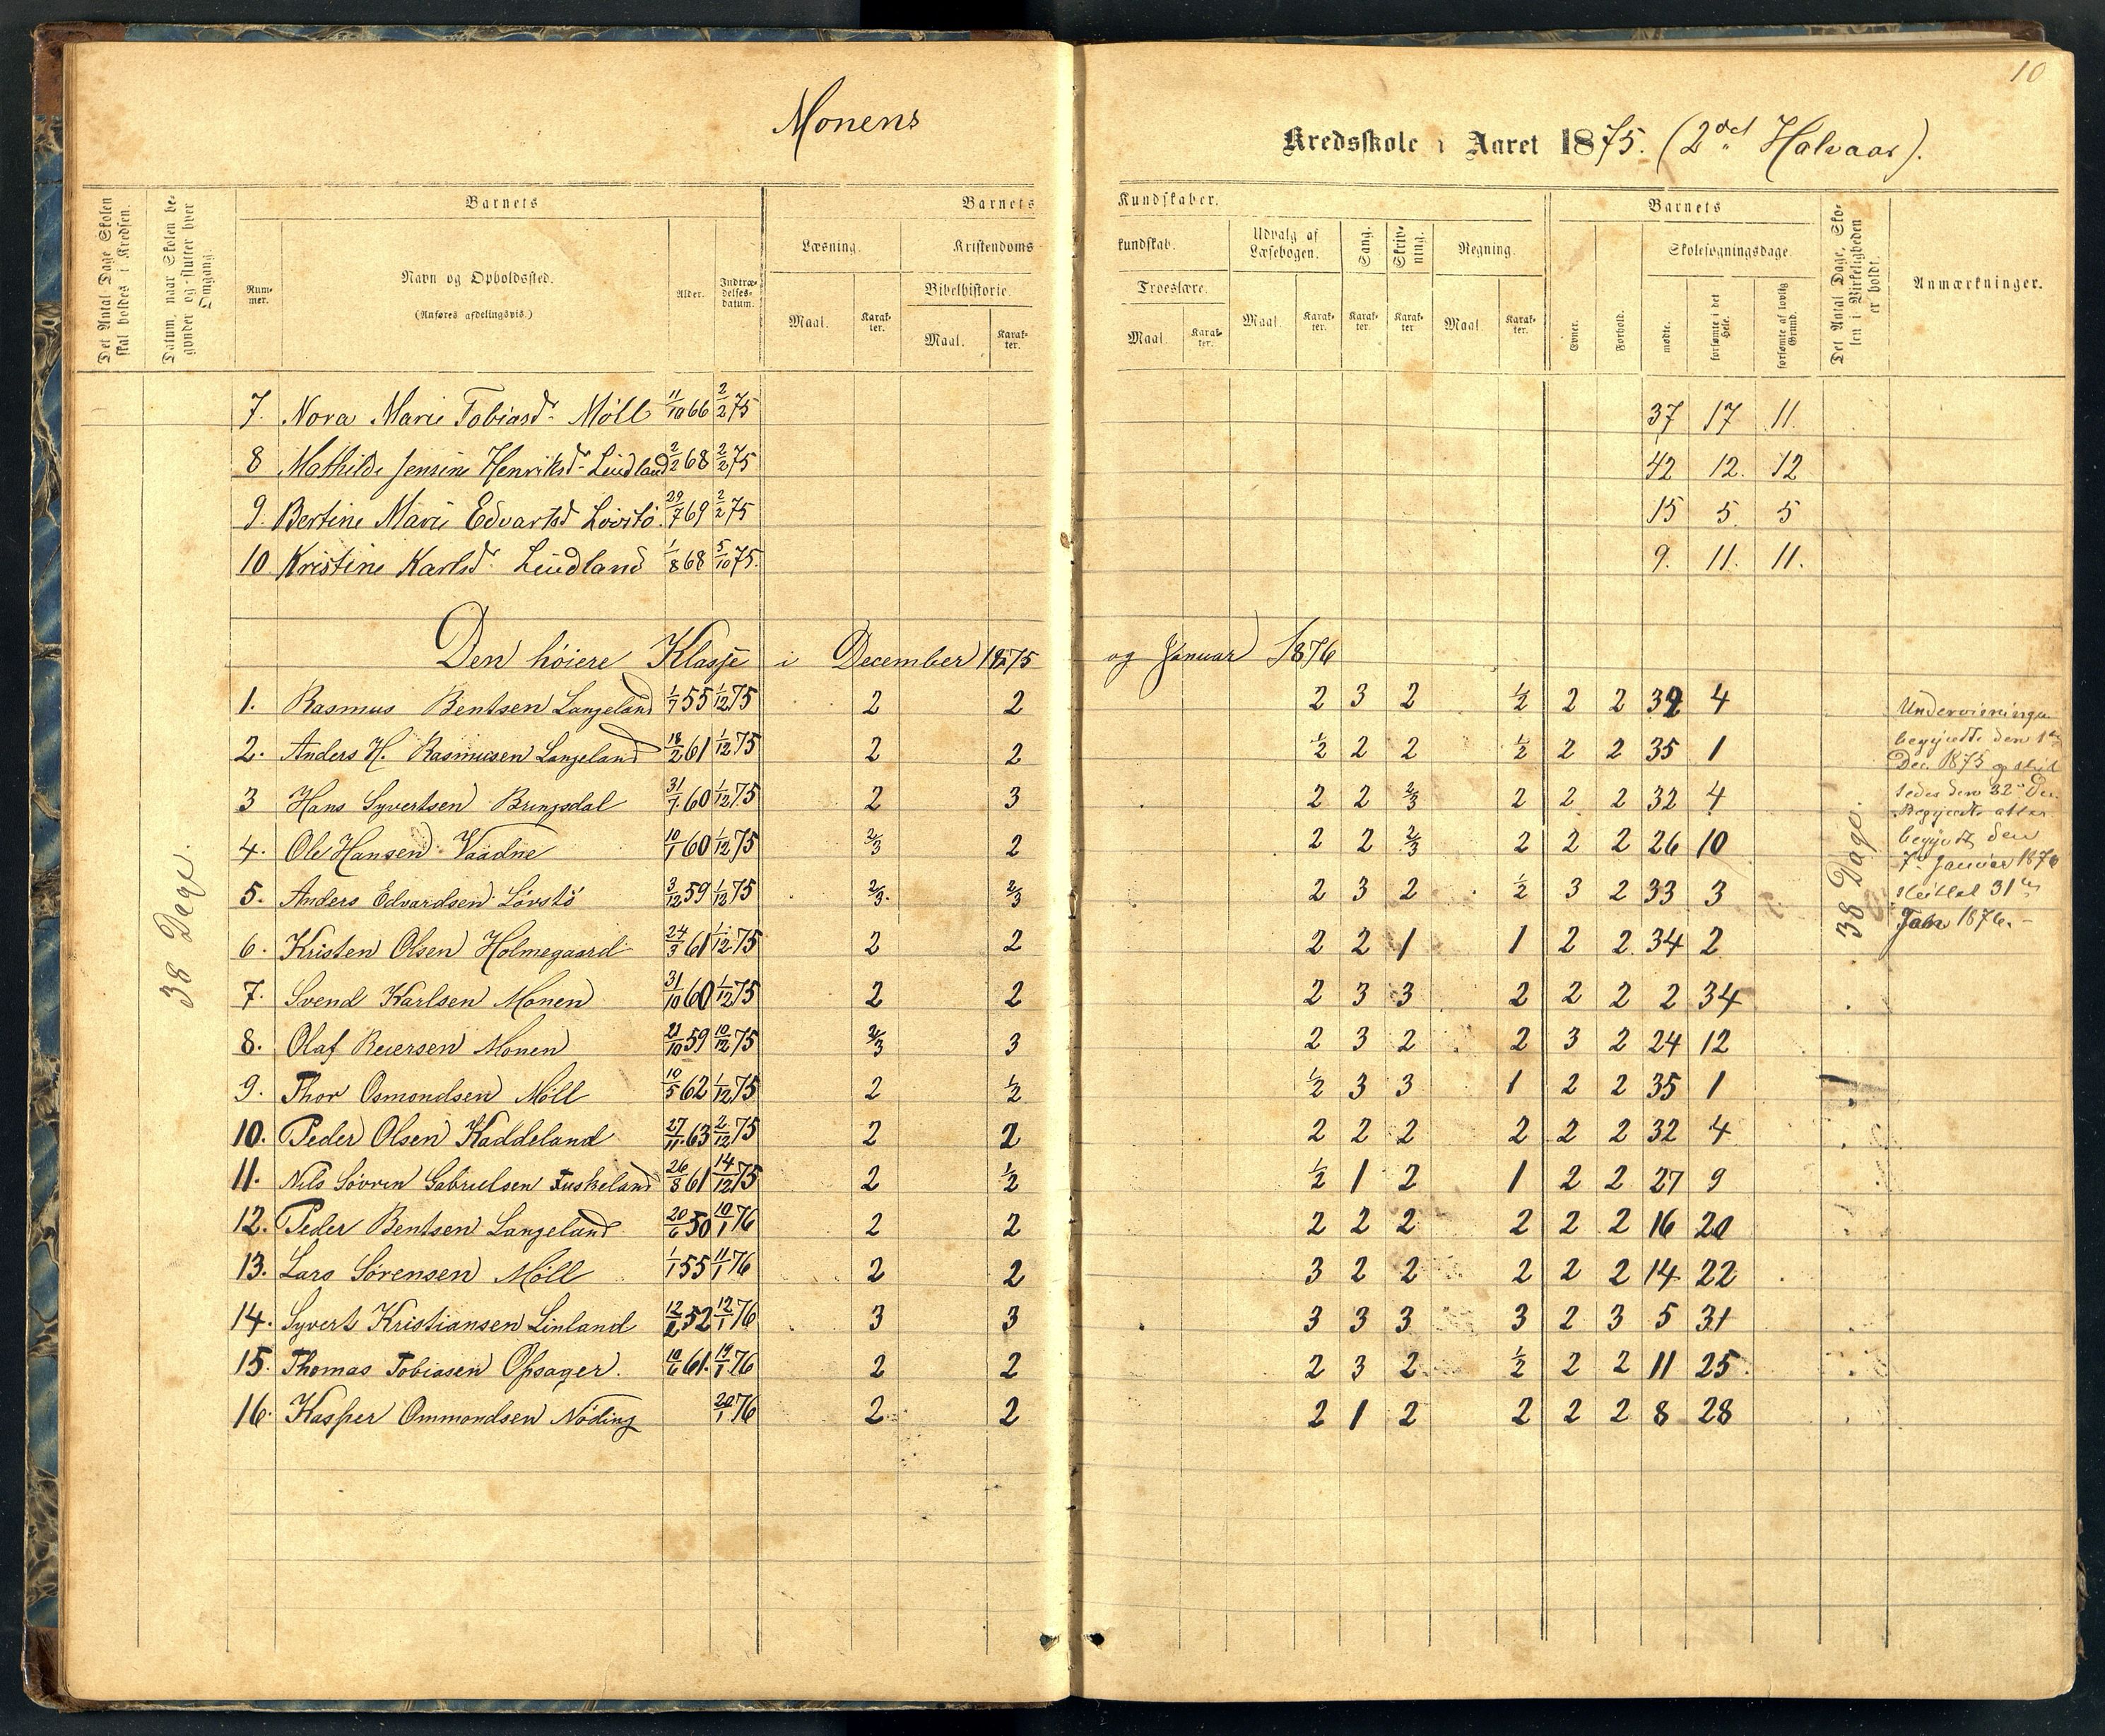 10
Monens Kredsskole i Aaret 1875. (2det Halvaar).
Det Antal Dage Skolen skal holdes i Kredsen.
Datum, naar Skolen begynder og slutter hver Omgang.
Barnets
Nummer.
Navn og Opholdssted.
(Anføres afdelingsvis.)
Alder.
Indtrædelsesdatum.
Barnets Kundskaber.
Læsning.
Maal.
Karakter.
Kristendomskundskab.
Bibelhistorie.
Maal.
Karakter.
Troeslære.
Maal.
Karakter.
Udvalg af Læsebogen.
Maal.
Karakter.
Sang.
Karakter.
Skrivning.
Karakter.
Regning.
Maal.
Karakter.
Barnets
Evner.
Forhold.
Skolesøgningsdage.
mødte.
forsømte i det Hele.
forsømte af lovlig Grund.
Det Antal Dage, Skolen i Virkeligheden er holdt.
Anmærkninger.
7. Nora Marie Tobiasdr. Möll 11/10 66 2/2 75 37 17 11.
8 Mathilde Jensine Henriksdr. Lindland 2/2 68 2/2 75 42 12. 12
9. Bertine Marie Edvartsd Lövstö. 29/7 69 2/2 75 15 5. 5
10 Kristine Karlsd. Lindland 1/8 68 5/10 75. 9. 11. 11.
Den höiere Klasse i December 1875 og Januar 1876
1. Rasmus Bentsen Langeland 1/7 55 1/12 75 2 2 2 3 2 1/2 2 2 32 4
2. Anders H. Rasmusen Langeland 18/2 61 1/12 75 2 2 1/2 2 2 1/2 2 2 35 1
3 Hans Syvertsen Bringsdal 31/7 60 1/12 75 2 3 2 2 2/3 2 2 2 32 4
4. Ole Hansen Vaadne 10/1 60 1/12 75 2/3 2 2 2 2/3 2 2 2 26 10
5. Anders Edvardsen Lövstö 3/12 59 1/12 75 2/3. 2/3 2 3 2 1/2 3 2 33 3
6. Kristen Olsen Holmegaard 24/3 61 1/12 75 2 2 2 2 1 1 2 2. 34 2
7. Svend Karlsen Monen 31/10 60 1/12 75 2 2 2 3 3 2 2 2 2 34
8. Olaf Reiersen Monen 21/10 59 10/12 75 2/3 3 2 3 2 2 3 2 24 12
9. Thor Osmondsen Möll 10/5 62 1/12 75 2 1/2 1/2 3 3 1 2 2 35 1
10. Peder Olsen Haddeland 27/11 63 2/12 75 2 2 2 2 2 2 2 2 32 4
11. Nils Sövren Gabrielsen Fuskeland 26/8 61 14/12 75 2 1/2 1/2 1 2 1 2 2 27 9
12. Peder Bentsen Langeland 20/6 50 10/1 76 2 2 2 2 2 2 2 2 16 20
13. Lars Sörensen Möll 1/1 55 11/1 76 2 2 3 2 2 2 2 2 14 22
14. Syvert Kristiansen Linland 12/2 52 12/1 76 3 3 3 3 3 3 2 3 5 31
15. Thomas Tobiasen Opsager. 10/6 61. 19/1 76 2 2 2 3 2 1/2 2 2 11 25
16. Kasper Ommondsen Nöding 20/1 76 2 2 2 1 2 2 2 2 8 28
38 Dage.
38 Dage.
Undervisningen
begyndte den 1ste
Dec. 1875 og
den 22de Dec.
atter
begyndt den
7de Januar 1876
sluttet 31te
Jan 1876.